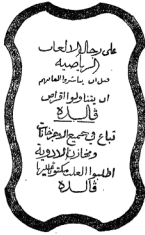 على رجال الالعاب
الرياضية
قبل ان يباشروا العابهم
ان يتناولوا اقراص
ڤالدة
تباع في جميع الاجزاخانات
ومخازن الادوية
اطلبوا العلب مكتوب عليها
ڤالدة